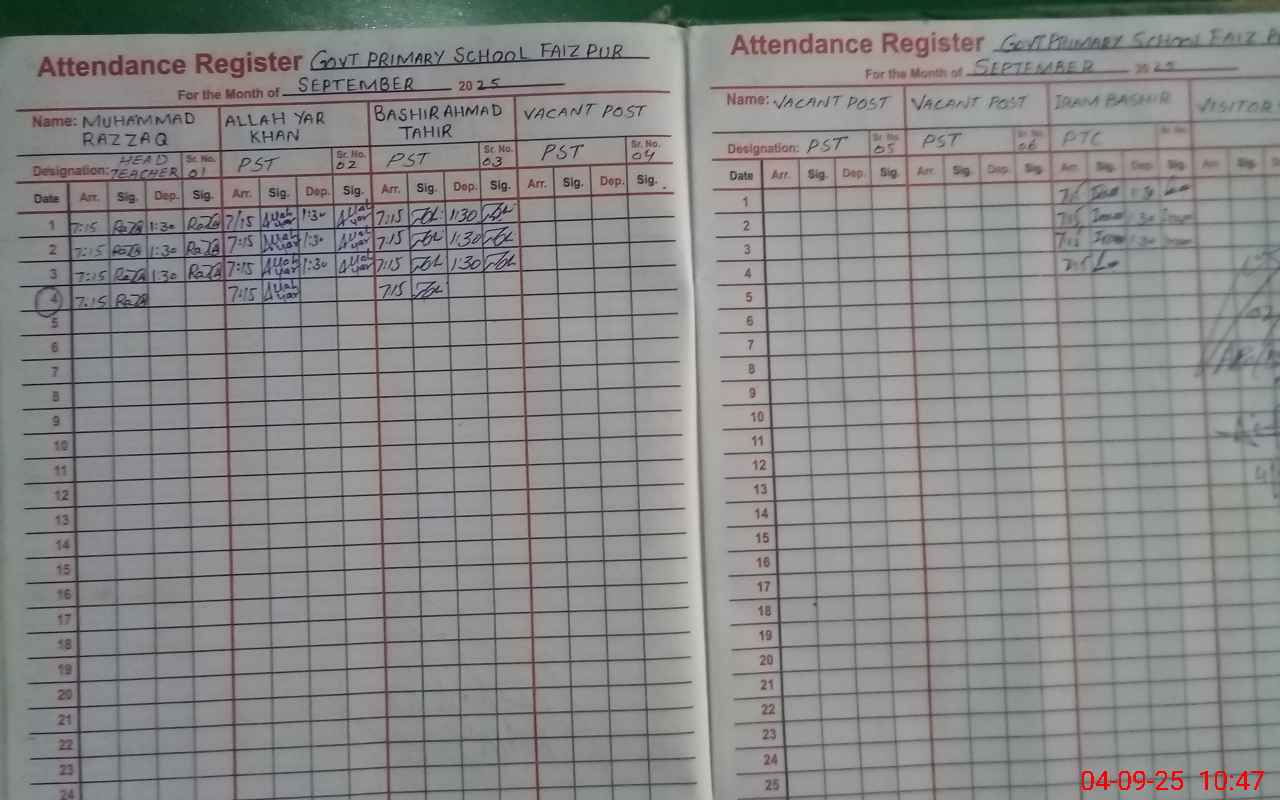 Attendance Register GOVT PRIMARY SCHOOL FAIZ PUR
For the Month of SEPTEMBER 2025
Name: MUHAMMAD RAZZAQ ALLAH YAR KHAN BASHIR AHMAD TAHIR VACANT POST
Designation: HEAD TEACHER Sr. No. 01 PST Sr. No. 02 PST Sr. No. 03 PST Sr. No. 04
Date Arr. Sig. Dep. Sig. Arr. Sig. Dep. Sig. Arr. Sig. Dep. Sig. Arr. Sig. Dep. Sig.
1 7:15 1:30 7/15 Allah yar 1:30 Allah yar 7:15 1:30
2 7:15 1:30 7:15 Allah yar 1:30 Allah yar 7:15 1:30
3 7:15 1:30 7:15 Allah yar 1:30 Allah yar 7:15 1:30
4 7:15 7:15 Allah yar 7:15
5
6
7
8
9
10
11
12
13
14
15
16
17
18
19
20
21
22
23
24
Attendance Register GOVT PRIMARY SCHOOL FAIZ
For the Month of SEPTEMBER 2025
Name: VACANT POST VACANT POST IRAM BASHIR VISITOR
Designation: PST Sr. No. 05 PST Sr. No. 06 PTC Sr. No.
Date Arr. Sig. Dep. Sig. Arr. Sig. Dep. Sig. Arr. Sig. Dep. Sig. Arr. Sig.
1 1:30
2 7:15 1:30
3 1:30
4
5
6
7
8
9
10
11
12
13
14
15
16
17
18
19
20
21
22
23
24
25
04-09-25 10:47